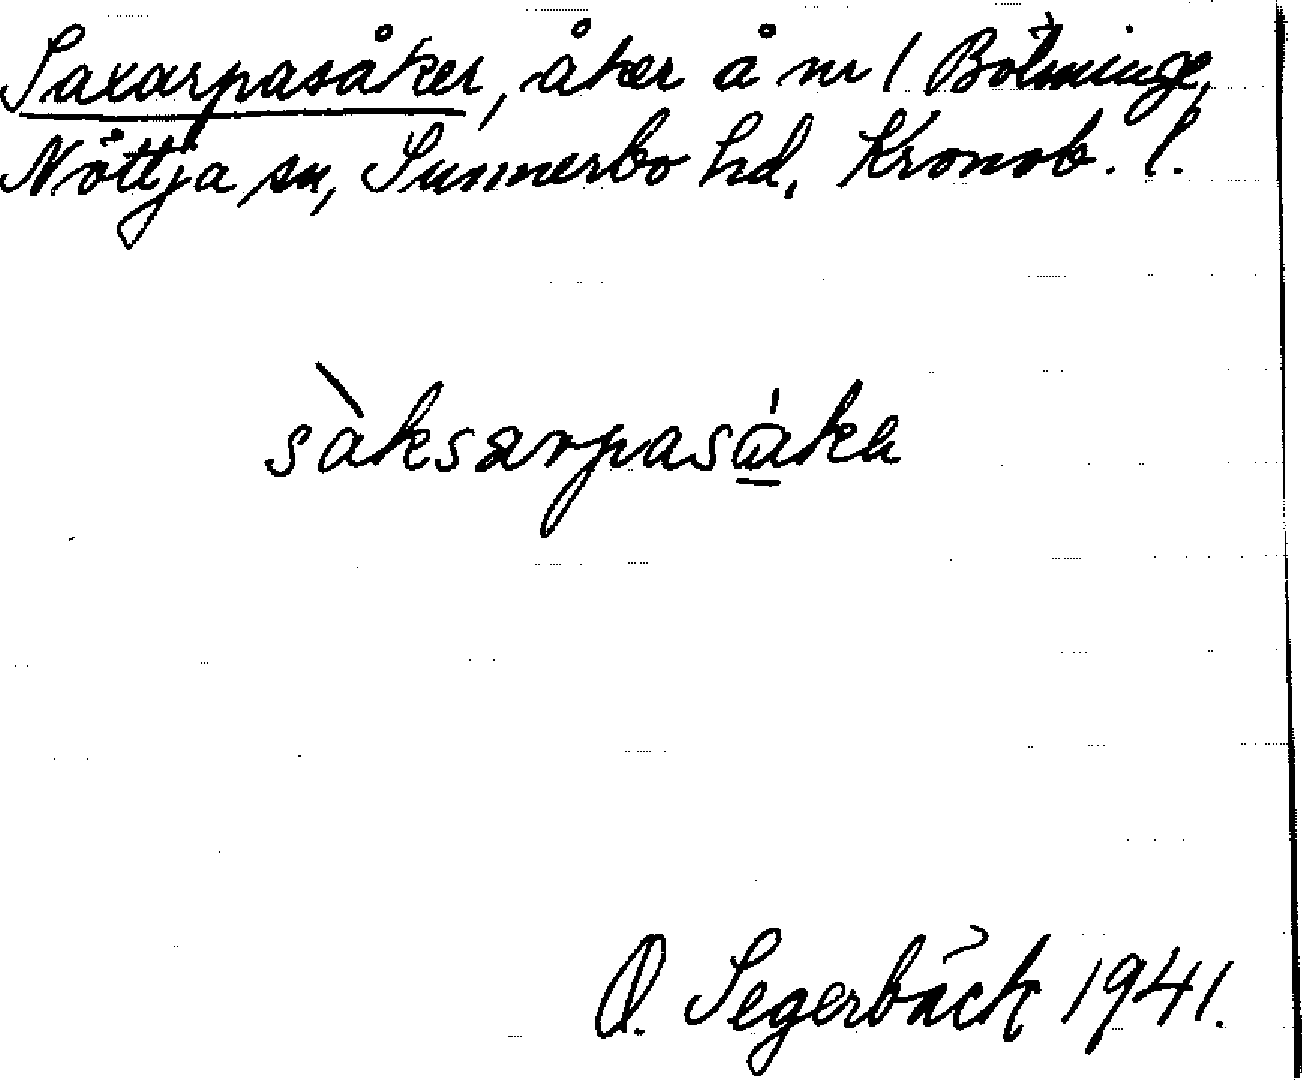 Saxarpasåker, åker å nr 1 Bölminge,
Nöttja sn, Sunnerbo hd, Kronob. l.
sàksarpasa̱̍ka
O. Segerbäck 1941.